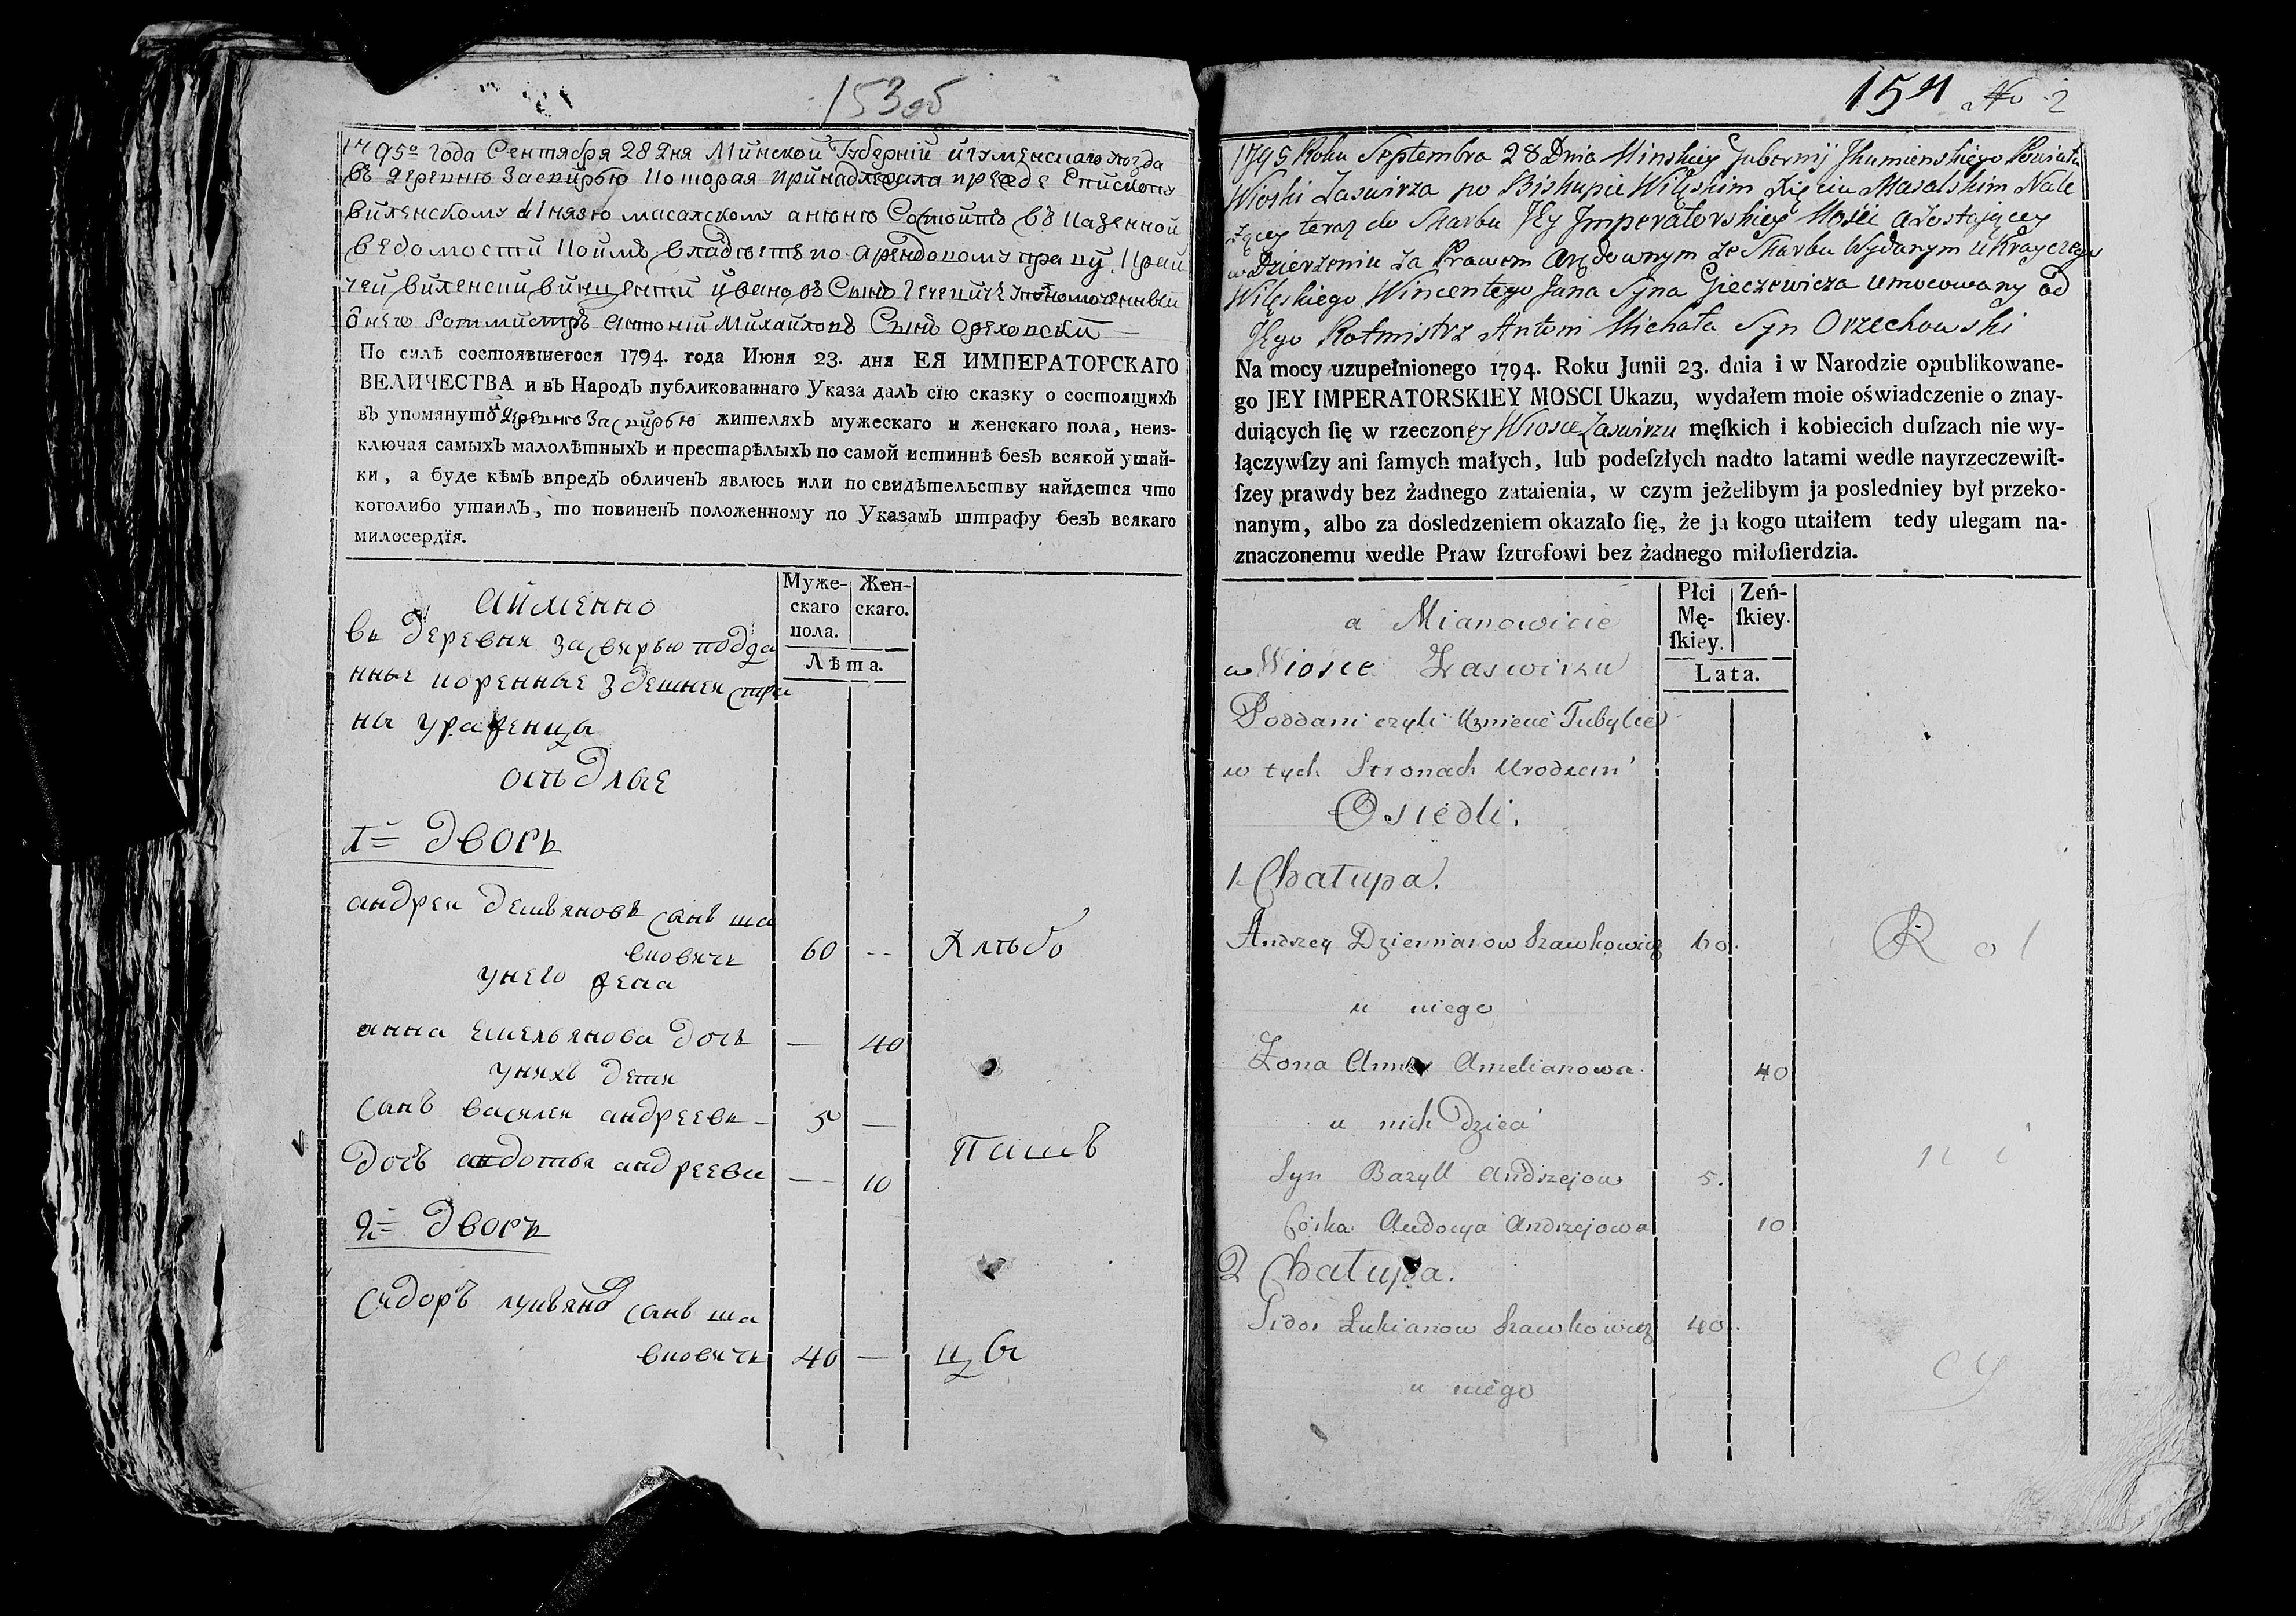 153об
1795го года Сентября 28 дня Минской Губерніи игуменскаго уѣзда
въ деревню Засвирью которая принадлежала прежде Епископу
виленскому Князю масалскому а нынѣ Состоитъ въ Казенной
ведомости коимъ владѣетъ по арендовому праву Край
чей виленский викентий ивановъ Сынъ Гечевичъ уполномоченный
от него Ротмистръ антоній Михайловъ Сынъ Ореховски
По силѣ состоявшегося 1794. года Июня 23. дня ЕЯ ИМПЕРАТОРСКАГО
ВЕЛИЧЕСТВА и въ Народъ публикованнаго Указа далъ сїю сказку о состоящихъ
въ упомянутой деревнѣ Засвирью жителяхъ мужескаго и женскаго пола, неиз-
ключая самыхъ малолѣтныхъ и престарѣлыхъ по самой истиннѣ безъ всякой утай-
ки, а буде кѣмъ впредь обличенъ явлюсь или по свидѣтельству найдется что
коголибо утаилъ, то повиненъ положенному по Указамъ штрафу безъ всякаго
милосердїя.
Муже-
скаго
пола.
Жен-
скаго.
Лѣта.
Аименно
въ деревни Засвирью подда
нные коренные здешней стра
ны уроженцы
осѣдлые
1й дворъ
андреи демьяновъ сынъ ша
вковичъ 60 -- Хлѣбо
унего жена
анна емельянова дочь — 40
унихъ дети
Сынъ василеи андреевъ - 5 —
дочь авдотья андреева — 10 пашъ
2й дворъ
Сидоръ лукьяновъ сынъ ша
вковичъ 40 — цы
154 No 2
1795 Roku Septembra 28 Dnia Minskiey Gubernij Jhumienskiego Powiatu
Wioski Zaswirza po Biskupie Wileńskim Xięciu Masalskim Nale
żącey teraz do Skarbu Jey Imperatorskiey Mości a zostającey
w Dzierżeniu za Prawem Arędownym ze Skarbu Wydanym u Krayczego
Wileńskiego Wincentego Jana Syna Gieczewicza umocowany od
Jego Rotmistrz Antoni Michała Syn Orzechowski
Na mocy uzupełnionego 1794. Roku Junii 23. dnia i w Narodzie opublikowane-
go JEY IMPERATORSKIEY MOSCI Ukazu, wydałem moie oświadczenie o znay-
duiących ſię w rzeczoney Wiosce Zaswirzu męſkich i kobiecich duſzach nie wy-
łączywſzy ani ſamych małych, lub podeſzłych nadto latami wedle nayrzeczewiſt-
ſzey prawdy bez żadnego zataienia, w czym jeżelibym ja posledniey był przeko-
nanym, albo za dosledzeniem okazało ſię, że ja kogo utaiłem tedy ulegam na-
znaczonemu wedle Praw ſztrofowi bez żadnego miłoſierdzia.
Płci
Mę-
ſkiey.
Zeń-
ſkiey.
Lata.
a Mianowicie
w Wiosce Zaswirzu
Poddani czyli Kmiecie Tubylce
w tych Stronach Urodzeni
Osiedli.
1. Chatupa.
Andrzey Dziemianow Szawkowicz 60. Rol
u niego
Zona Anna Amelianowa. 40
u nich Dzieci
Syn Bazyll Andrzejow 5. ni
Córka Audocya Andrzejowa 10
2 Chatupa.
Sidor Łukianow Szawkowicz 40. cy
u niego